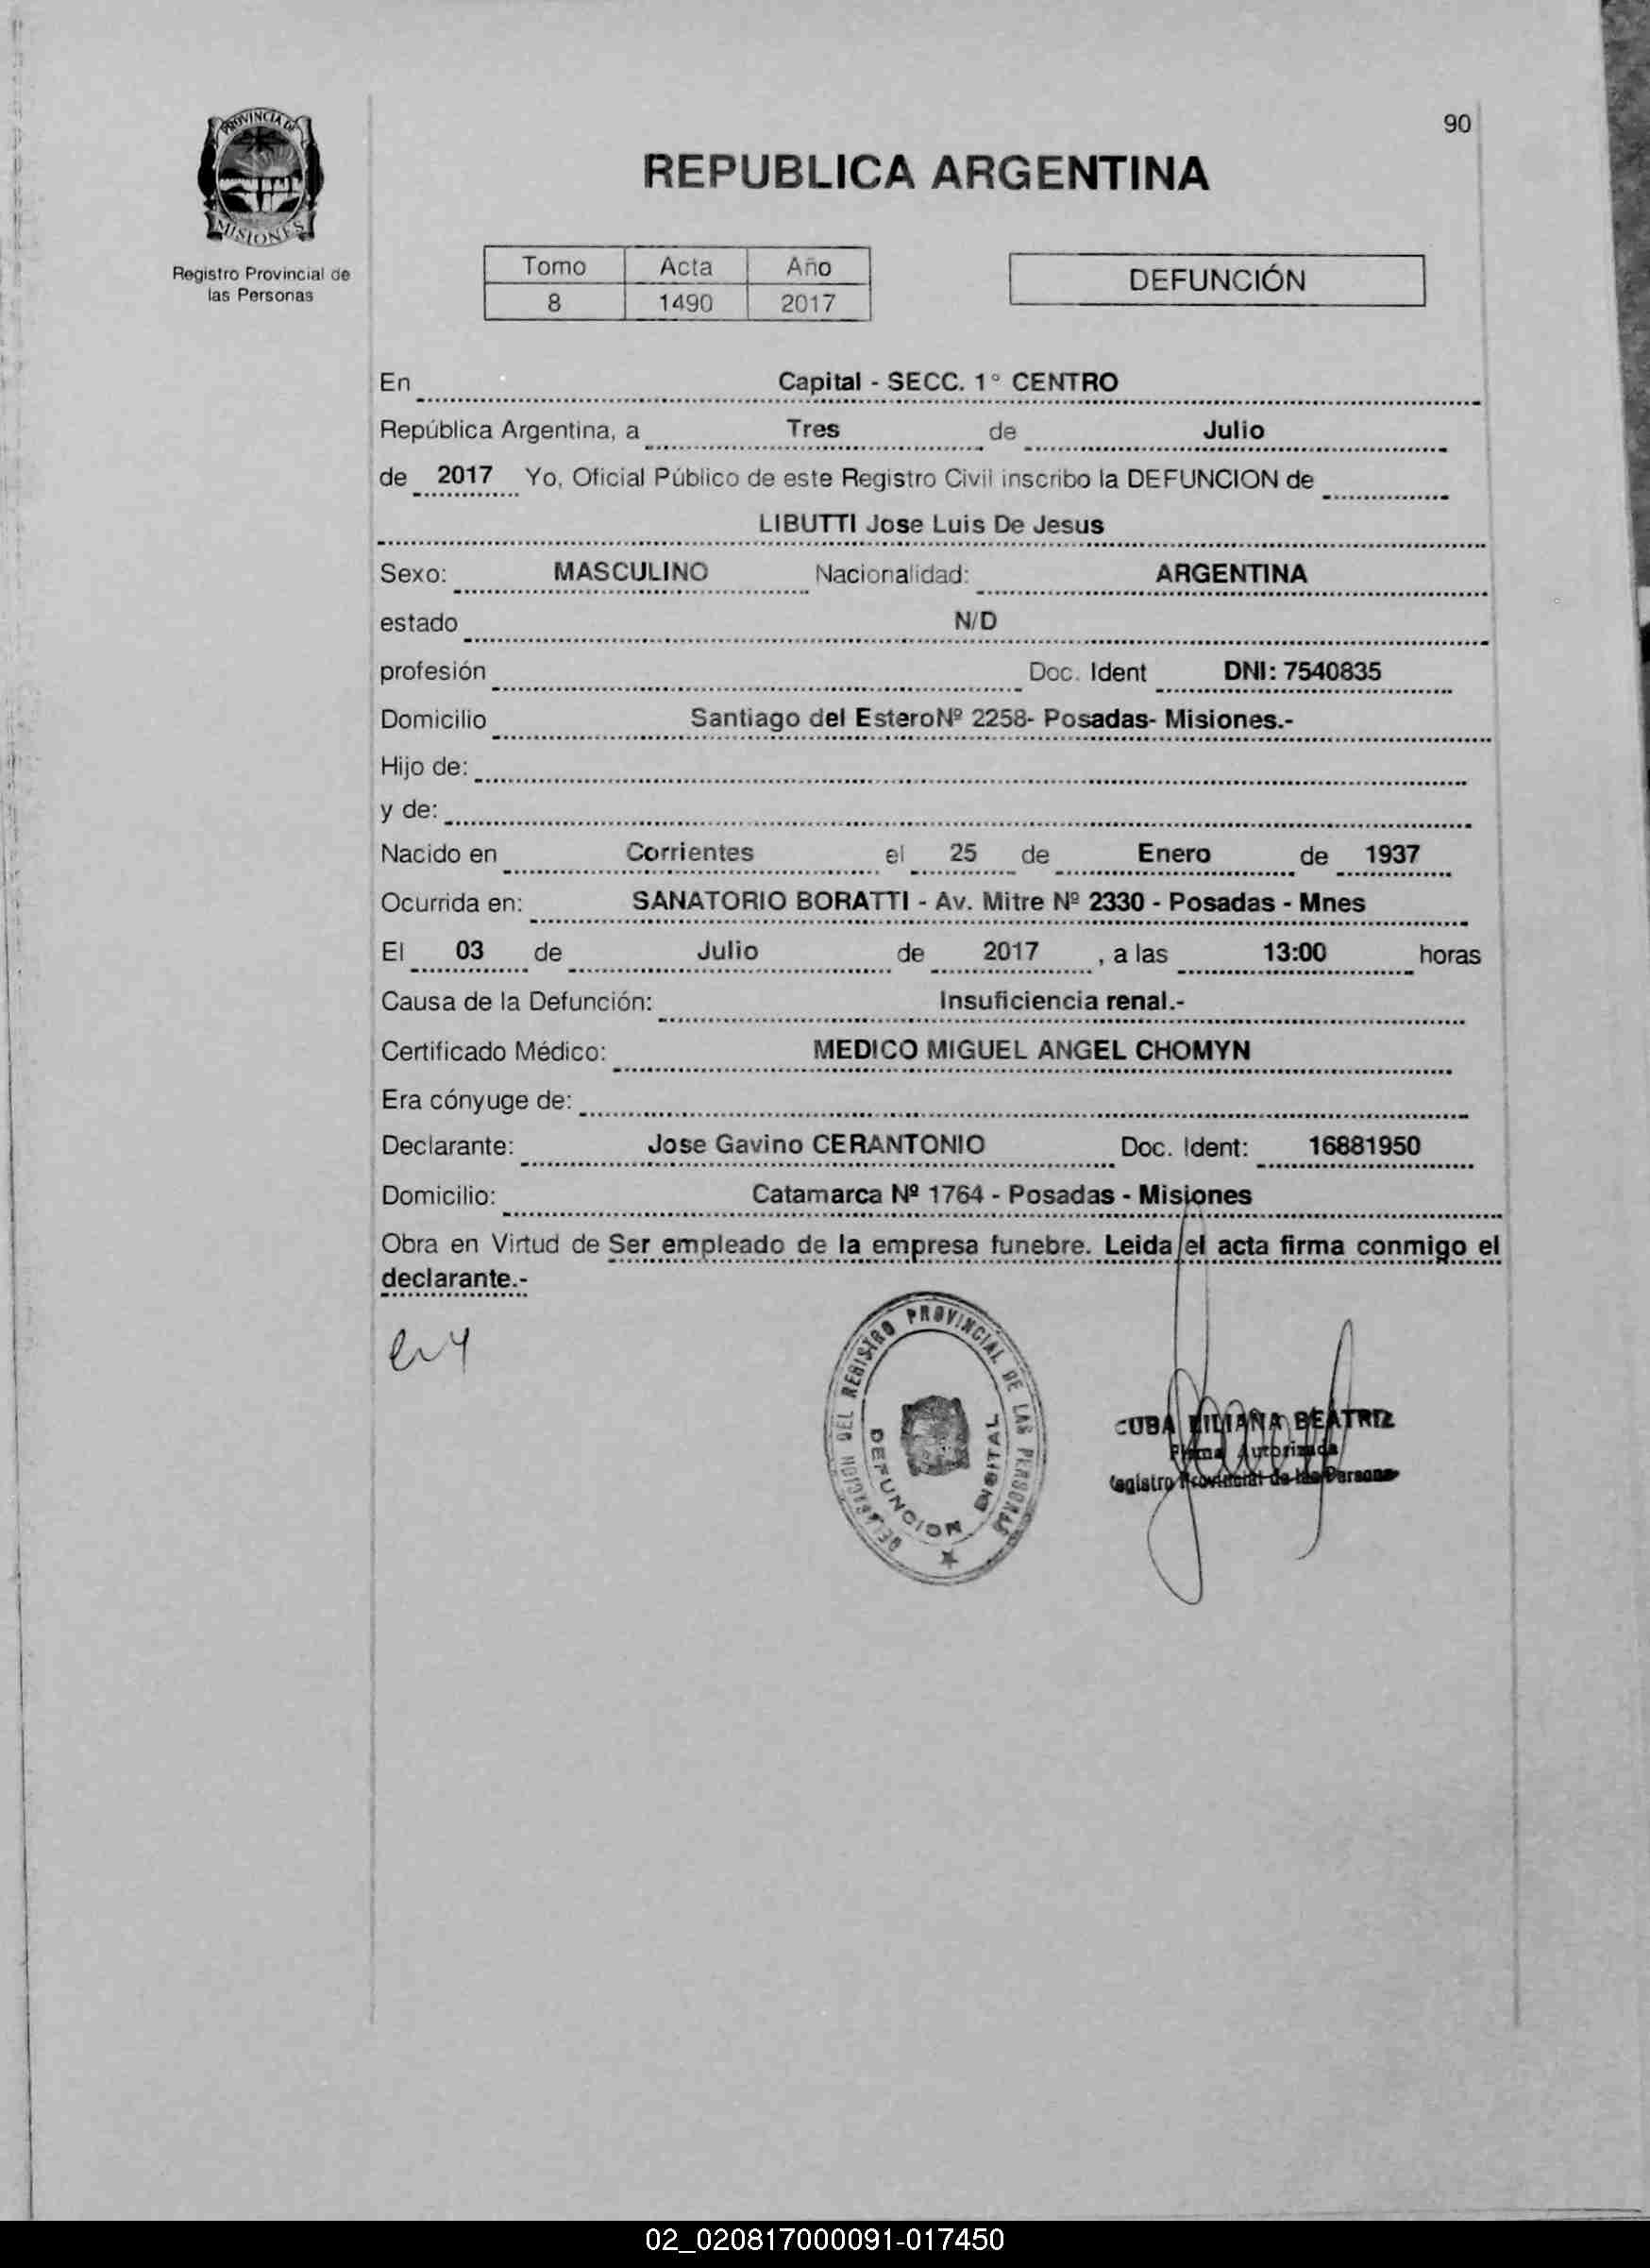 90
PROVINCIA DE
MISIONES
REPUBLICA ARGENTINA
Registro Provincial de
las Personas
Tomo Acta Año
8 1490 2017
DEFUNCIÓN
En Capital - SECC. 1° CENTRO
República Argentina, a Tres de Julio
de 2017 Yo, Oficial Público de este Registro Civil inscribo la DEFUNCION de
LIBUTTI Jose Luis De Jesus
Sexo: MASCULINO Nacionalidad: ARGENTINA
estado N/D
profesión Doc. Ident DNI: 7540835
Domicilio Santiago del EsteroNº 2258- Posadas- Misiones.-
Hijo de:
y de:
Nacido en Corrientes el 25 de Enero de 1937
Ocurrida en: SANATORIO BORATTI - Av. Mitre Nº 2330 - Posadas - Mnes
El 03 de Julio de 2017 , a las 13:00 horas
Causa de la Defunción: Insuficiencia renal.-
Certificado Médico: MEDICO MIGUEL ANGEL CHOMYN
Era cónyuge de:
Declarante: Jose Gavino CERANTONIO Doc. Ident: 16881950
Domicilio: Catamarca Nº 1764 - Posadas - Misiones
Obra en Virtud de Ser empleado de la empresa funebre. Leida el acta firma conmigo el
declarante.-
DELEGACION DEL REGISTRO PROVINCIAL DE LAS PERSONAS
DEFUNCION DIGITAL
CUBA LILIANA BEATRIZ
Firma Autorizada
Registro Provincial de las Personas
02_020817000091-017450